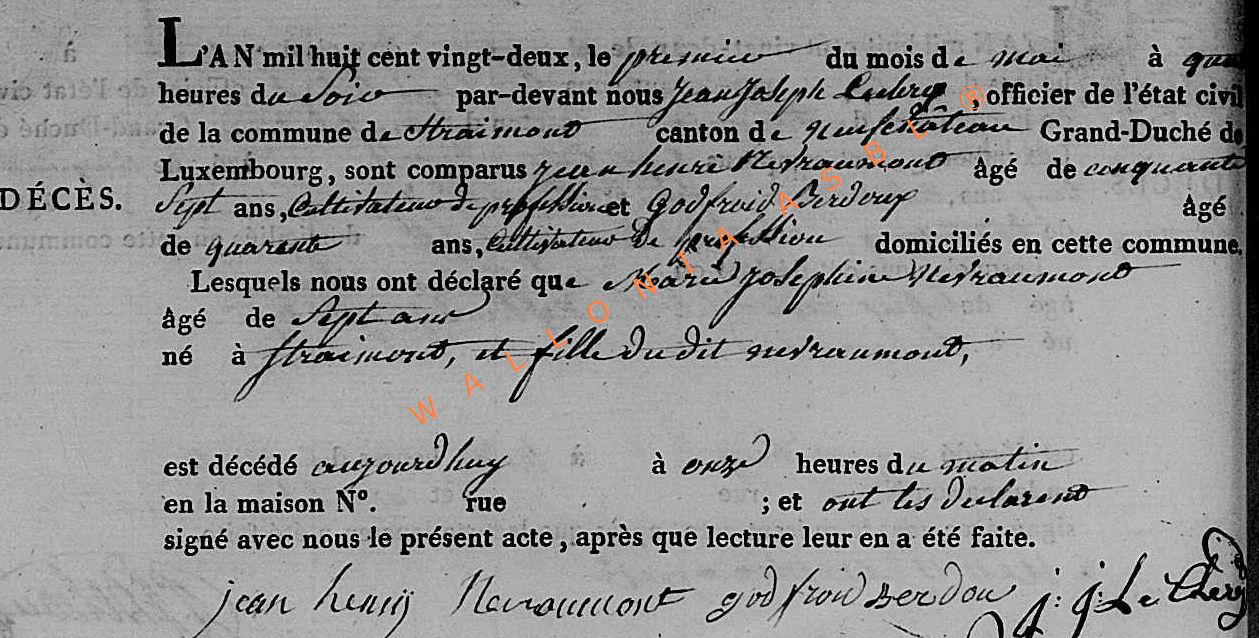 L'AN mil huit cent vingt-deux, le premier du mois de mai à
heures du Soir par-devant nous Jean Joseph , officier de l'état civil
de la commune de Straimont canton de neufchateau Grand-Duché de
Luxembourg, sont comparus jean henri Nevraumont âgé de cinquante
DÉCÈS. Sept ans, Cultivateur de profession et Godfroid Berdoux âgé
de quarante ans, Cultivateur de profession domiciliés en cette commune.
Lesquels nous ont déclaré que Marie Josephine Nevraumont
âgé de Sept ans
né à Straimont, et fille du dit nevraumont,
WALLONIA ASBL ®
est décédé aujourdhuy à onze heures du matin
en la maison N°. rue ; et ont les declarent
signé avec nous le présent acte, après que lecture leur en a été faite.
jean henry Nevraumont godfroid Berdou j: j: Le